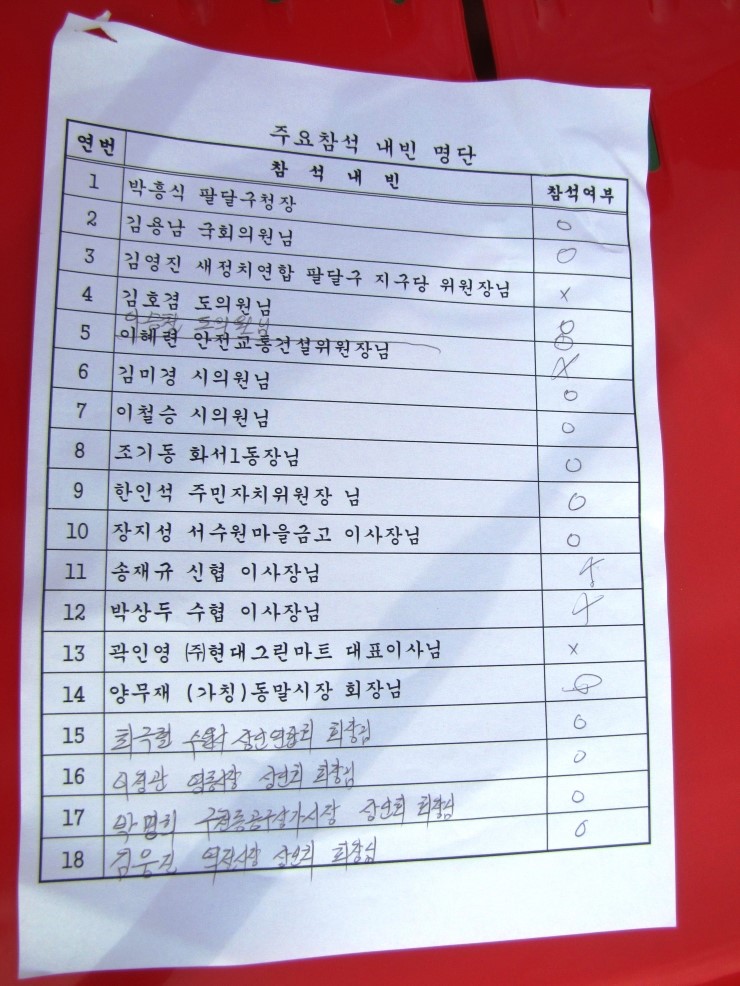 주요참석 내빈 명단
연번 참 석 내 빈 참석여부
1 박흥식 팔달구청장 O
2 김용남 국회의원님 O
3 김영진 새정치연합 팔달구 지구당 위원장님 X
4 김호겸 도의원님 O
도의원님 O
5 이혜련 안전교통건설위원장님 X
6 김미경 시의원님 O
7 이철승 시의원님 O
8 조기동 화서1동장님 O
9 한인석 주민자치위원장 님 O
10 장지성 서수원마을금고 이사장님 O
11 송재규 신협 이사장님
12 박상두 수협 이사장님
13 곽인영 ㈜현대그린마트 대표이사님 X
14 양무재 (가칭)동말시장 회장님 O
15 최극렬 상인연합회 회장님 O
16 상인회 회장님 O
17 박명희 구천동공구상가시장 상인회 회장님 O
18 김웅진 역전시장 상인회 회장님 O